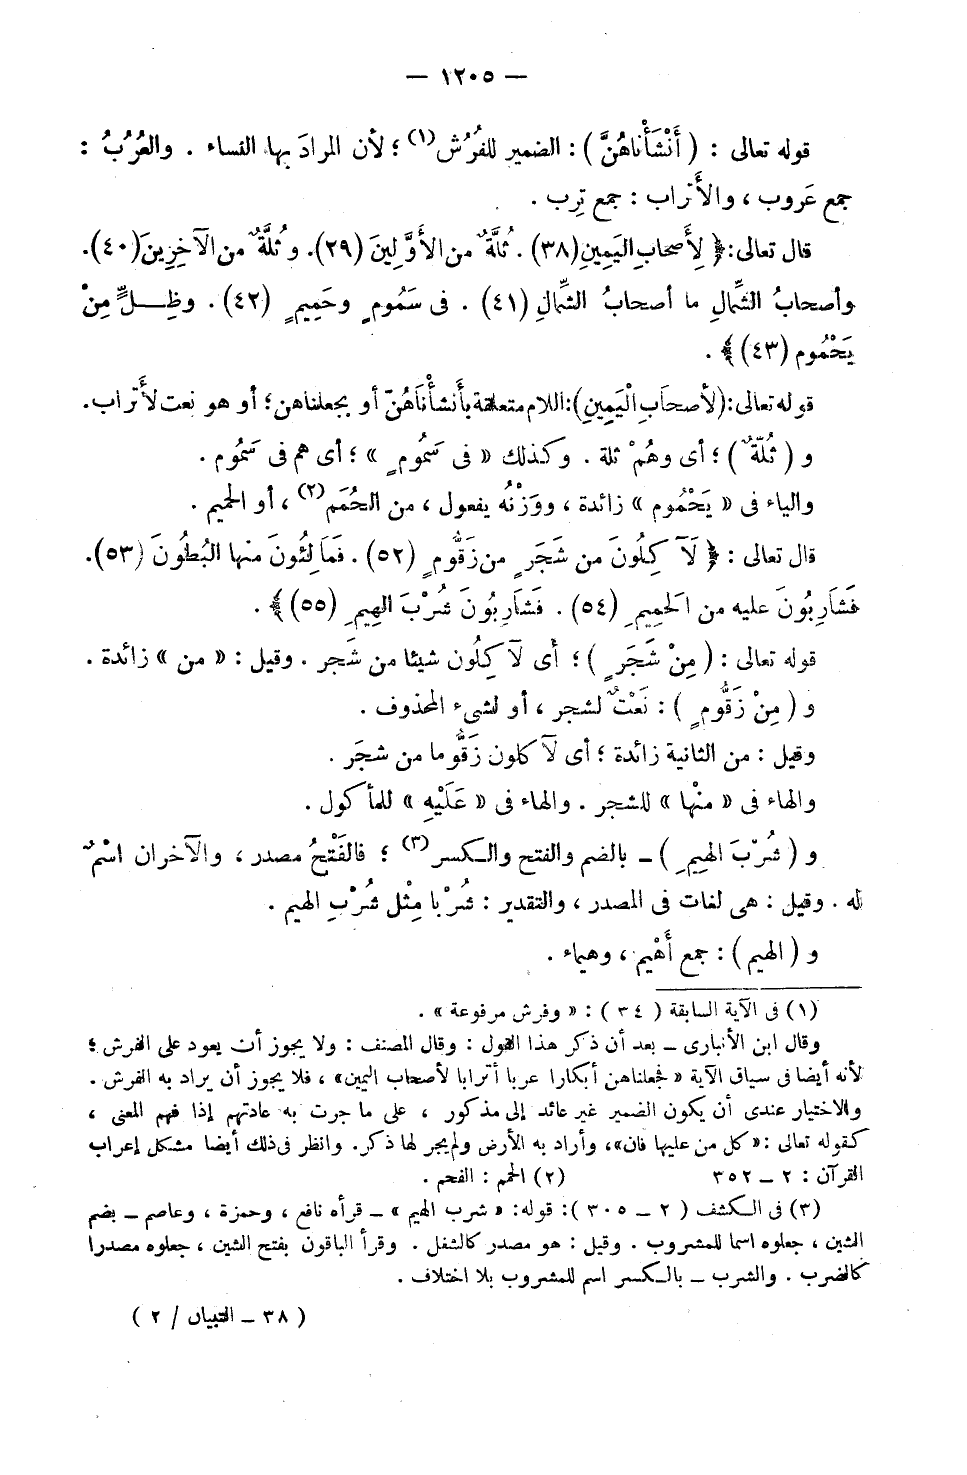 — ١٢٠٥ —
قوله تعالى : ( أَنْشَأْناهُنَّ ) : الضمير للفُرُش(١) ؛ لأن المرادَ بها النساء . والعُرُبُ :
جمع عَروب ، والأَتراب : جمع تِرب .
قال تعالى: ﴿ لِأَصحابِ اليَمِينِ(٣٨) . ثُلَّةٌ من الأَوَّلِينَ (٣٩). وثُلَّةٌ من الآخِرِينَ(٤٠).
وأصحابُ الشِّمالِ ما أصحابُ الشِّمالِ (٤١) . فى سَمُومٍ وحَمِيمٍ (٤٢) . وظِـــلٍّ مِنْ
يَحْمُوم (٤٣)﴾ .
قوله تعالى:(لأصحَابِ الْيَمِينِ):اللام متعلقة بأَنشأْنَاهُنّ أو بجعلناهن؛ أو هو نعت لأَتراب.
و ( ثُلّةٌ ) ؛ أى وهُمْ ثلة . وكذلك « فى سَمُومٍ » ؛ أى هم فى سَمُوم .
والياء فى « يَحْمُوم » زائدة ، ووَزْنُه يفعول ، من الحُمَم(٢) ، أو الحميم .
قال تعالى : ﴿ لَآكِلُونَ من شَجَرٍ من زَقُّومٍ (٥٢) . فَمَالِئُونَ منها البُطُونَ (٥٣).
فَشَارِبُونَ عليه من الحَمِيمِ (٥٤) . فَشَارِبُونَ شُرْبَ الهِيمِ (٥٥) ﴾ .
قوله تعالى : ( مِنْ شَجَرٍ ) ؛ أى لآكِلُون شيئا من شَجر . وقيل : « من » زائدة .
و ( مِنْ زَقُّومٍ ) : نَعْتٌ لشجر ، أو لشىء المحذوف .
وقيل : من الثانية زائدة ؛ أى لآكلون زَقُّوما من شجَر .
والهاء فى « منْها » للشجر . والهاء فى « عَلَيْهِ » للمأكول .
و ( شُرْبَ الهِيمِ ) – بالضم والفتح والكسر(٣) ؛ فالفَتْحُ مصدر ، والآخران اسْمٌ
له . وقيل : هى لغات فى المصدر ، والتقدير : شُرْبا مِثْل شُرْبِ الهيم .
و ( الهيم ) : جمع أَهْيم ، وهيماء .
(١) فى الآية السابقة ( ٣٤ ) : « وفرش مرفوعة » .
وقال ابن الأنبارى – بعد أن ذكر هذا القول : وقال المصنف : ولا يجوز أن يعود على الفرش ؛
لأنه أيضا فى سياق الآية « فجعلناهن أبكارا عربا أترابا لأصحاب اليمين» ، فلا يجوز أن يراد به الفرش .
والاختيار عندى أن يكون الضمير غير عائد إلى مذكور ، على ما جرت به عادتهم إذا فهم المعنى ،
كقوله تعالى :« كل من عليها فان»، وأراد به الأرض ولم يجر لها ذكر. وانظر فى ذلك أيضا مشكل إعراب
القرآن : ٢ – ٣٥٢ (٢) الحمم : الفحم .
(٣) فى الكشف ( ٢ – ٣٠٥ ): قوله: « شرب الهيم » – قرأه نافع ، وحمزة ، وعاصم – بضم
الشين ، جعلوه اسما للمشروب . وقيل : هو مصدر كالشغل . وقرأ الباقون بفتح الشين ، جعلوه مصدرا
كالضرب . والشرب – بالكسر اسم للمشروب بلا اختلاف .
( ٣٨ – التبيان / ٢ )